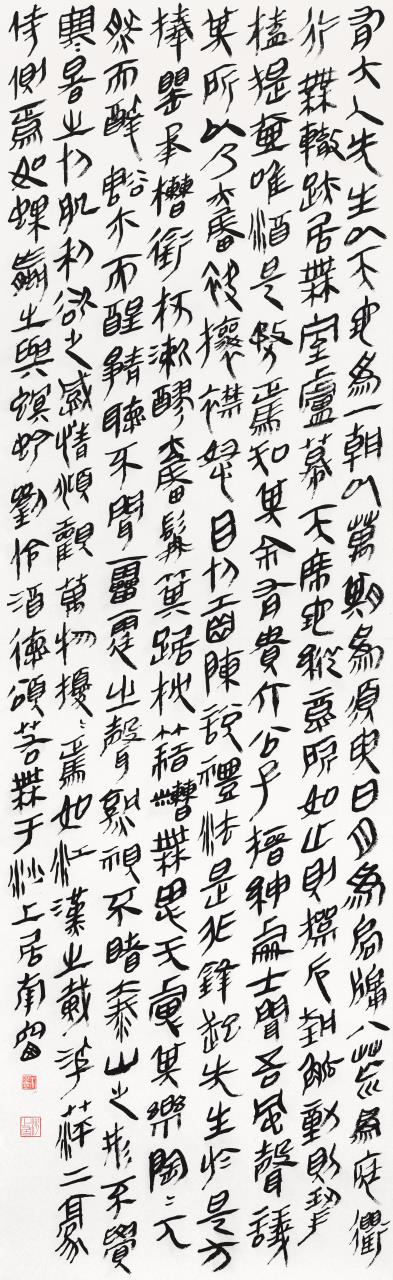 有大人先生以天地為一朝以萬期為須臾日月為扃牖八荒為庭衢
行無轍跡居無室廬幕天席地縱意所如止則操卮執觚動則挈
榼提壺唯酒是務焉知其余有貴介公子搢紳處士聞吾風聲議
其所以乃奮袂攘襟怒目切齒陳說禮法是非鋒起先生於是方
捧罌承槽銜杯漱醪奮髯箕踞枕藉糟無思无慮其樂陶〻兀
然而醉豁尒而醒靜聽不聞雷霆之聲孰視不睹泰山之形不覺
寒暑之切肌利欲之感情俯觀萬物擾〻焉如江漢之載浮萍二豪
侍側焉如蜾蠃之與螟蛉劉伶酒德頌菩無于沙上居南窗